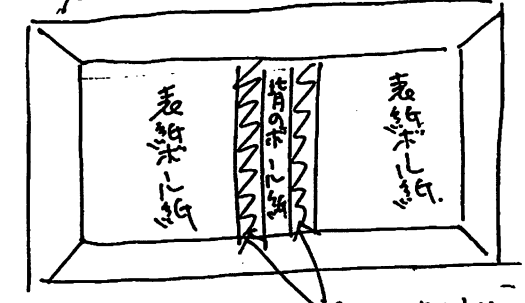 表紙ボール紙
背のボール紙
表紙ボール紙.